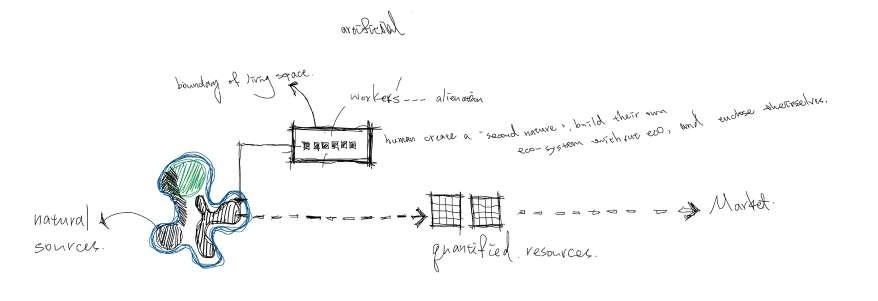 artificial
boundary of living space.
workers --- alienation
human create a "second nature", build their own
eco-system without eco, and enclose theirselves.
natural
sources.
Market.
quantified resources.